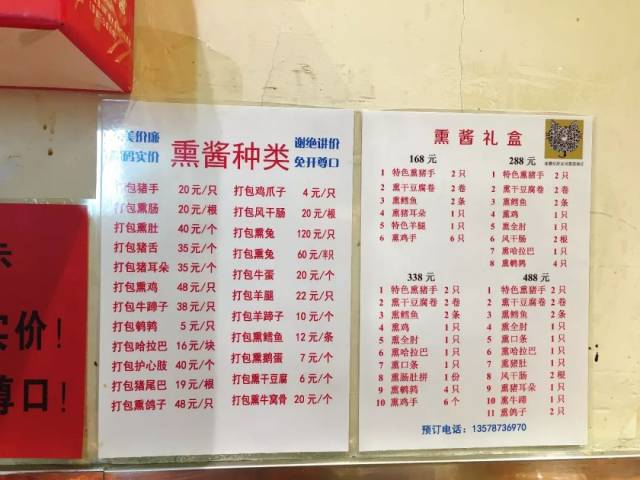 美价廉
码实价
熏酱种类
谢绝讲价
免开尊口
打包猪手 20元/只
打包熏肠 20元/根
打包熏肚 40元/个
打包猪舌 35元/个
打包猪耳朵 35元/个
打包熏鸡 48元/只
打包牛蹄子 38元/只
打包鹌鹑 5元/只
打包哈拉巴 16元/块
打包护心肢 40元/个
打包猪尾巴 19元/根
打包熏鸽子 48元/只
打包鸡爪子 4元/只
打包风干肠 20元/根
打包熏兔 120元/只
打包熏兔 60元/半只
打包牛蛋 20元/个
打包羊腿 22元/只
打包羊蹄子 10元/个
打包熏鳕鱼 12元/条
打包熏鹅蛋 7元/个
打包熏干豆腐 6元/个
打包熏牛窝骨 20元/个
熏酱礼盒
168元
1 特色熏猪手 2只
2 熏干豆腐卷 2卷
3 熏鳕鱼 2条
4 熏猪耳朵 1只
5 特色羊腿 1只
6 熏鸡手 6只
288元
1 特色熏猪手 2只
2 熏干豆腐卷 2卷
3 熏鳕鱼 2条
4 熏鸡 1只
5 熏全肘 1只
6 风干肠 2根
7 熏哈拉巴 1只
8 熏鹌鹑 4只
338元
1 特色熏猪手 2只
2 熏干豆腐卷 2卷
3 熏鳕鱼 2条
4 熏鸡 1只
5 熏全肘 1只
6 熏哈拉巴 1只
7 熏肠 1只
8 熏肠肚拼 1份
9 熏鹌鹑 4只
10 熏鸡手 6个
488元
1 特色熏猪手 2只
2 熏干豆腐卷 2卷
3 熏鳕鱼 2条
4 熏鸡 1只
5 熏口条 1只
6 熏哈拉巴 1只
7 熏猪肚 1只
8 风干肠 2根
9 熏猪耳朵 1只
10 熏牛蹄 1只
11 熏鸽子 2只
预订电话：13578736970
实价！
尊口！